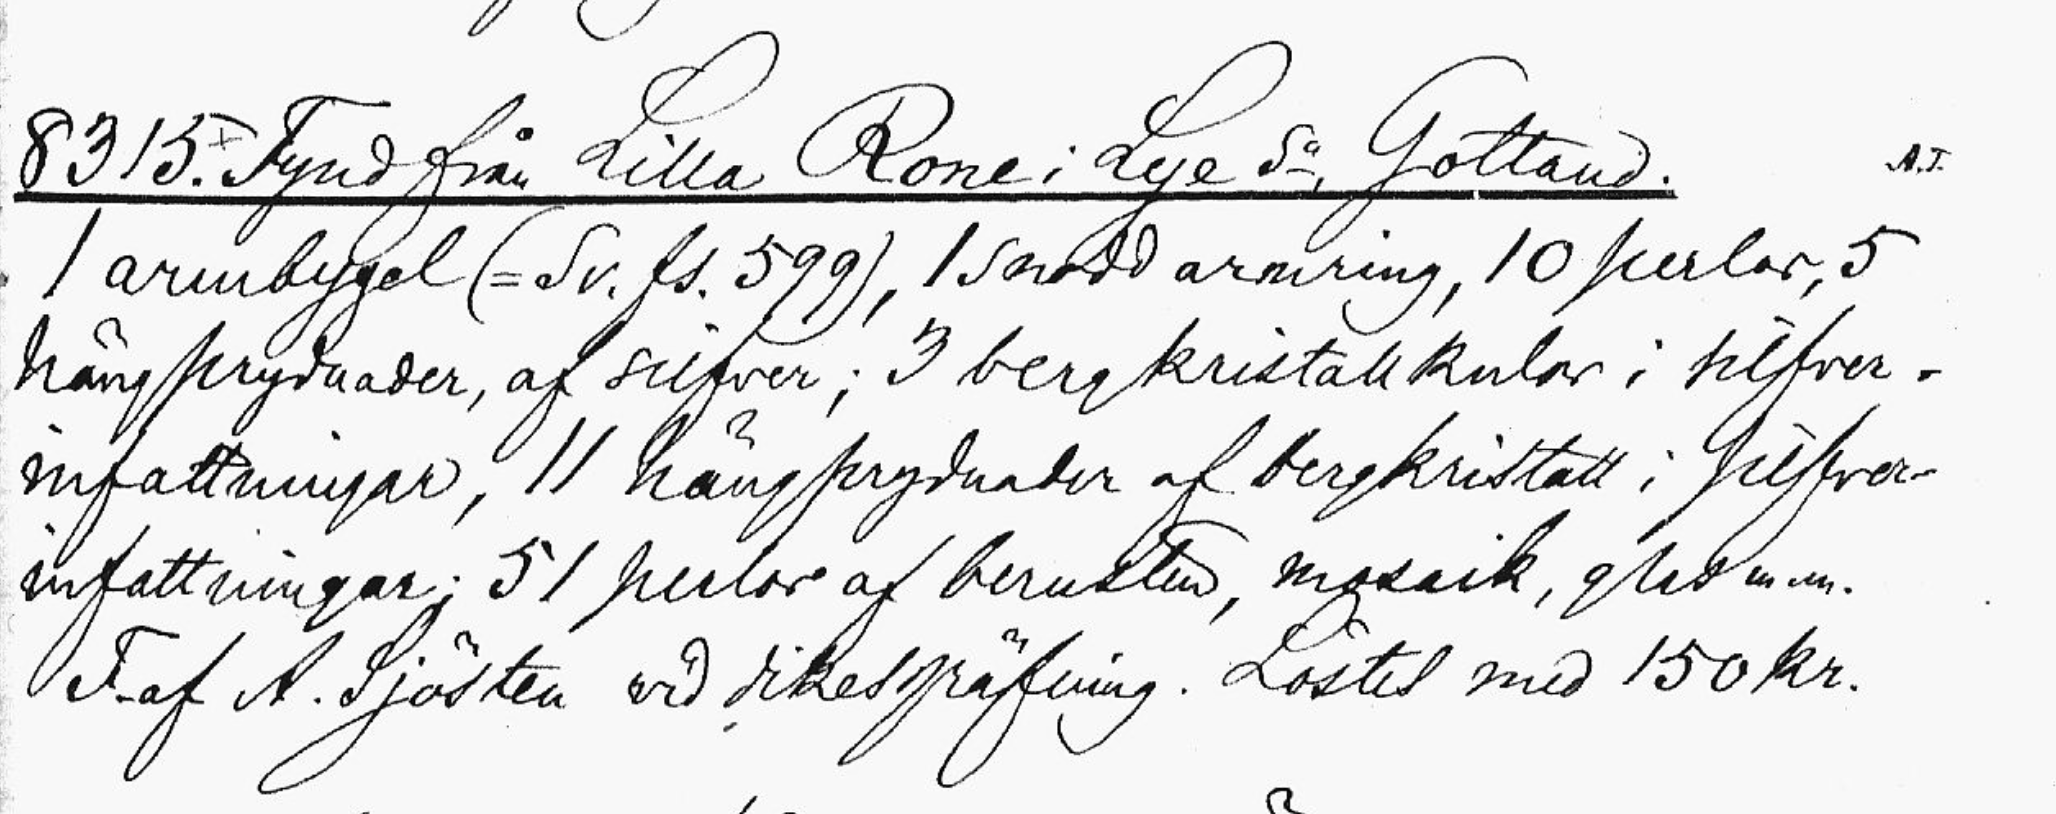 8315. Fynd från Lilla Rone i Lye Sn, Gotland. A.I.
1 armbygel (= Sv. fs. 599), 1 snodd armring, 10 perlor, 5
hängprydnader, af silfver; 3 bergkristallkulor i silfver-
infattningar, 11 hängprydnader af bergkristall i silfver-
infattningar; 51 perlor af bernsten, mosaik, glas m.m.
F. af A. Sjösten vid dikesgräfning. Löstes med 150 kr.